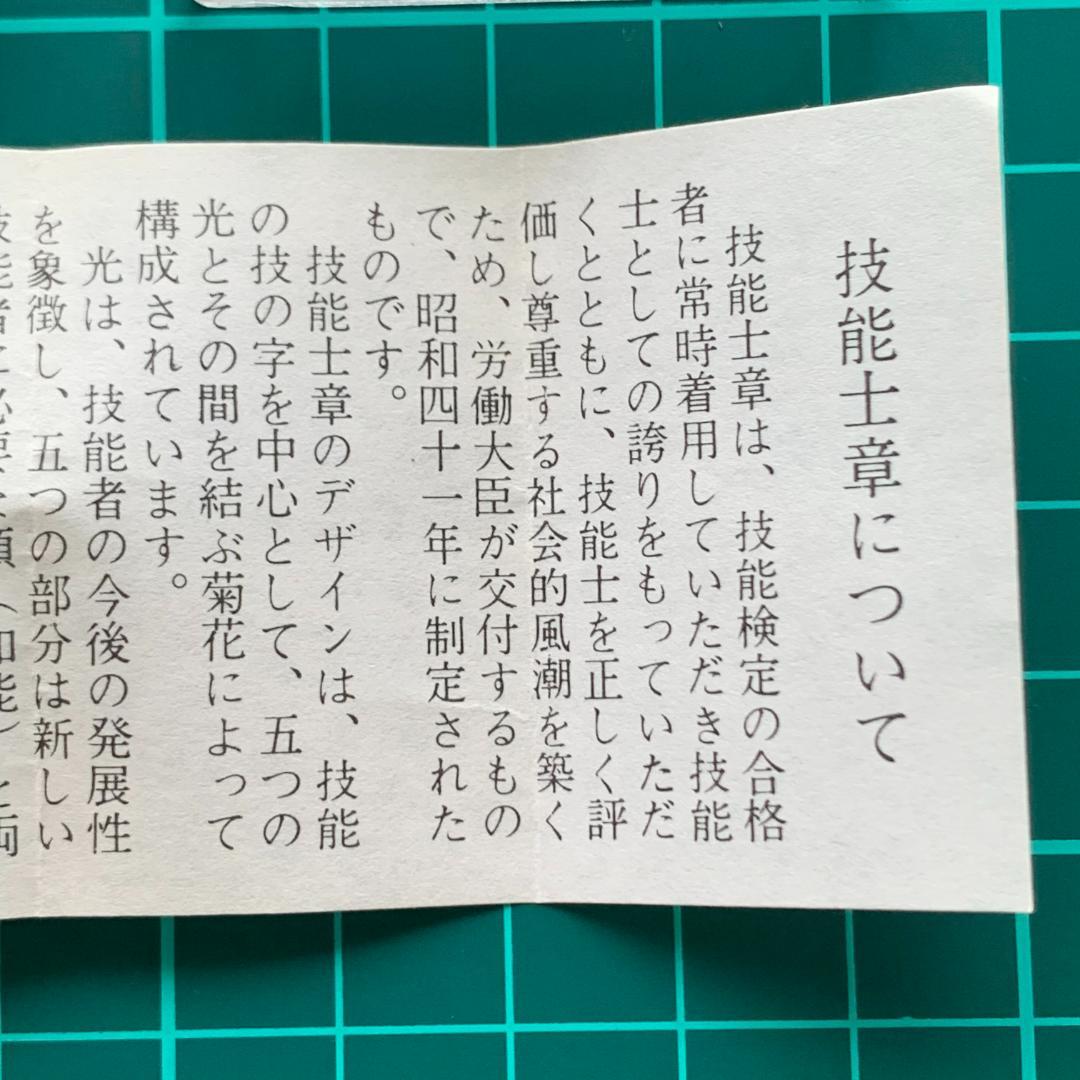 技能士章について
技能士章は、技能検定の合格
者に常時着用していただき技能
士としての誇りをもっていただ
くとともに、技能士を正しく評
価し尊重する社会的風潮を築く
ため、労働大臣が交付するもの
で、昭和四十一年に制定された
ものです。
技能士章のデザインは、技能
の技の字を中心として、五つの
光とその間を結ぶ菊花によって
構成されています。
光は、技能者の今後の発展性
を象徴し、五つの部分は新しい